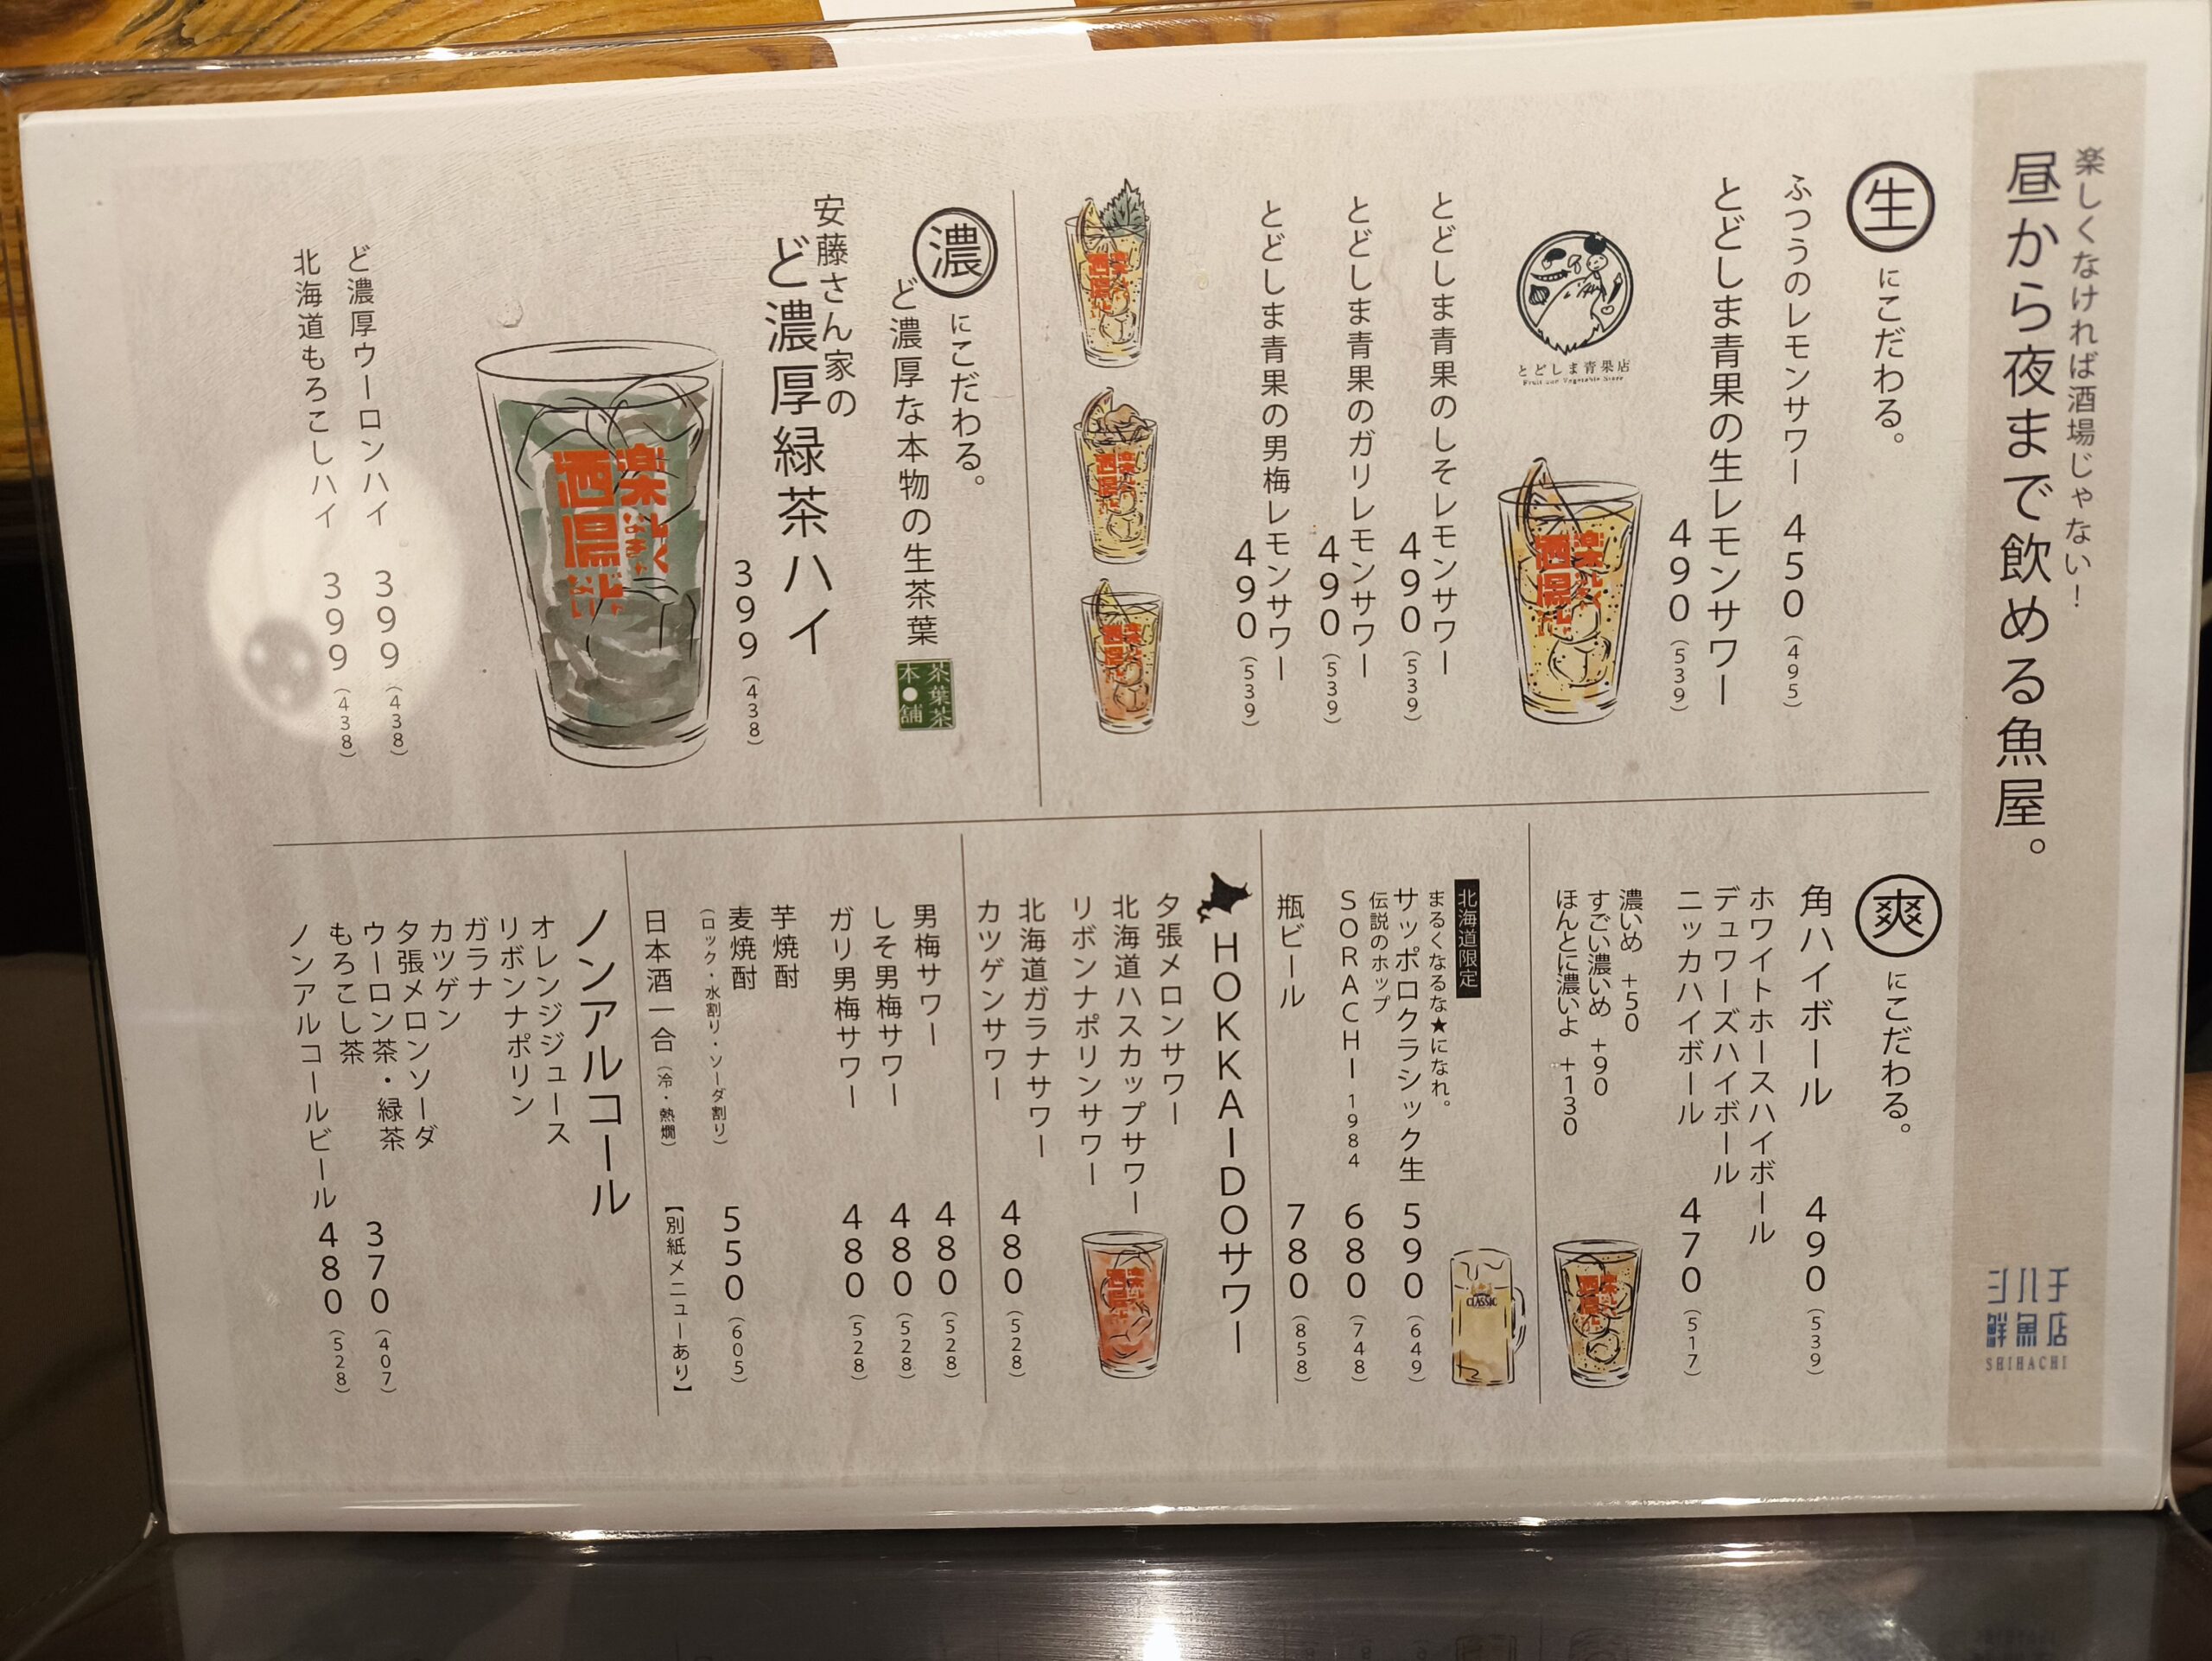 楽しくなければ酒場じゃない！
昼から夜まで飲める魚屋。
シハチ
鮮魚店
SHIHACHI
生にこだわる。
ふつうのレモンサワー 450（495）
とどしま青果の生レモンサワー
490（539）
とどしま青果店
Fruit and Vegetable Store
とどしま青果のしそレモンサワー
490（539）
とどしま青果のガリレモンサワー
490（539）
とどしま青果の男梅レモンサワー
490（539）
濃にこだわる。
ど濃厚な本物の生茶葉
茶葉茶
本●舗
安藤さん家の
ど濃厚緑茶ハイ
399（438）
ど濃厚ウーロンハイ 399（438）
北海道もろこしハイ 399（438）
爽にこだわる。
角ハイボール 490（539）
ホワイトホースハイボール
デュワーズハイボール
ニッカハイボール 470（517）
濃いめ +50
すごい濃いめ +90
ほんとに濃いよ +130
北海道限定
まるくなるな★になれ。
サッポロクラシック生 590（649）
CLASSIC
伝説のホップ
SORACHI 1984 680（748）
瓶ビール 780（858）
HOKKAIDOサワー
夕張メロンサワー
北海道ハスカップサワー
リボンナポリンサワー
北海道ガラナサワー
カツゲンサワー 480（528）
男梅サワー 480（528）
しそ男梅サワー 480（528）
ガリ男梅サワー 480（528）
芋焼酎
麦焼酎 550（605）
（ロック・水割り・ソーダ割り）
日本酒一合（冷・熱燗） 【別紙メニューあり】
ノンアルコール
オレンジジュース
リボンナポリン
ガラナ
カツゲン
夕張メロンソーダ
ウーロン茶・緑茶 370（407）
もろこし茶
ノンアルコールビール 480（528）